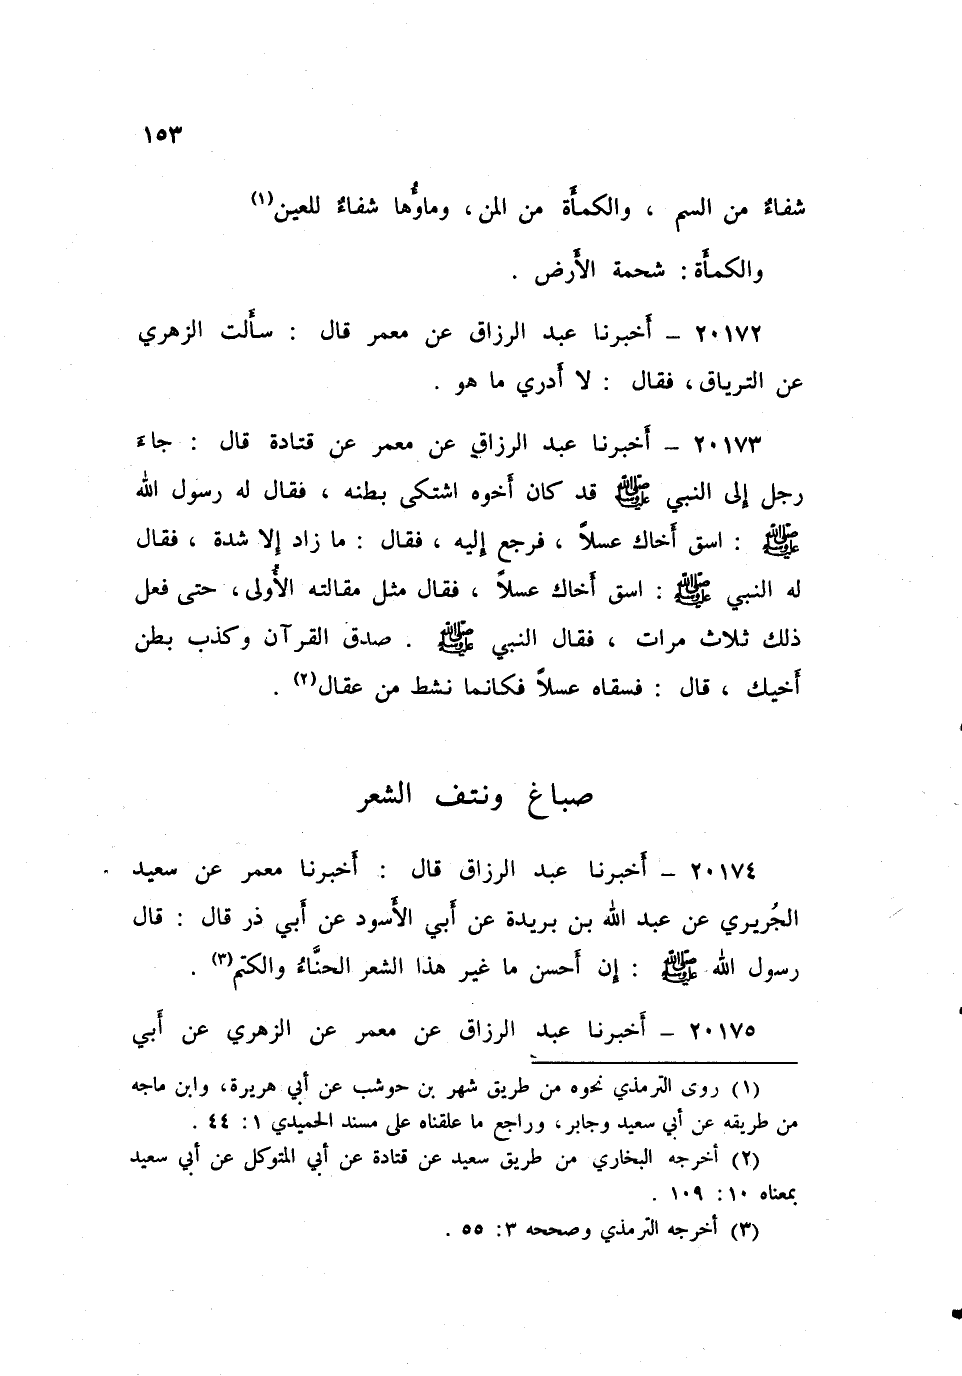 ١٥٣
شفاءٌ من السم ، والكمأَة من المن، وماؤُها شفاءٌ للعين(١)
والكمأَة : شحمة الأَرض .
٢٠١٧٢ – أَخبرنا عبد الرزاق عن معمر قال : سأَلت الزهري
عن الترياق، فقال : لا أَدري ما هو .
٢٠١٧٣ – أَخبرنا عبد الرزاق عن معمر عن قتادة قال : جاءَ
رجل إلى النبي ﷺ قد كان أَخوه اشتكى بطنه ، فقال له رسول الله
ﷺ : اسق أَخاك عسلاً ، فرجع إليه ، فقال : ما زاد إلا شدة ، فقال
له النبي ﷺ : اسق أَخاك عسلاً ، فقال مثل مقالته الأُولى، حتى فعل
ذلك ثلاث مرات ، فقال النبي ﷺ . صدق القرآن وكذب بطن
أَخيك ، قال : فسقاه عسلاً فكانما نشط من عقال(٢) .
صباغ ونتف الشعر
٢٠١٧٤ – أَخبرنا عبد الرزاق قال : أَخبرنا معمر عن سعيد
الجُريري عن عبد الله بن بريدة عن أَبي الأَسود عن أَبي ذر قال : قال
رسول الله ﷺ : إن أَحسن ما غير هذا الشعر الحنَّاءُ والكتم(٣) .
٢٠١٧٥ – أَخبرنا عبد الرزاق عن معمر عن الزهري عن أَبي
(١) روى الترمذي نحوه من طريق شهر بن حوشب عن أبي هريرة، وابن ماجه
من طريقه عن أبي سعيد وجابر، وراجع ما علقناه على مسند الحميدي ١: ٤٤ .
(٢) أخرجه البخاري من طريق سعيد عن قتادة عن أبي المتوكل عن أبي سعيد
بمعناه ١٠: ١٠٩ .
(٣) أخرجه الترمذي وصححه ٣: ٥٥ .